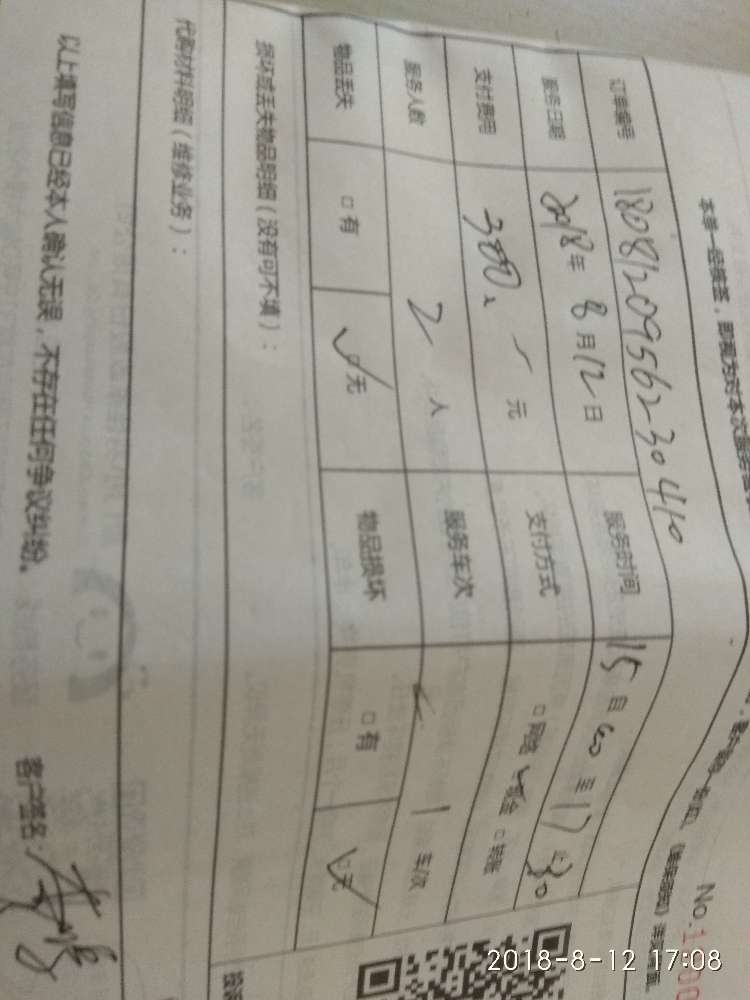 No.1
本单一经签签,即视为对本次服务
订单编号 1808120956230410
服务日期 2018年8月12日 服务时间 15自00至17:30
支付费用 380 元 支付方式 □网络 ✓现金 □转账
服务人数 2人 服务车次 1车次
物品丢失 □有 ☑无 物品损坏 □有 ☑无
损坏或丢失物品明细(没有可不填):
代购材料明细(维修业务):
以上填写信息已经本人确认无误,不存在任何争议纠纷。 客户签名:
2018-8-12 17:08